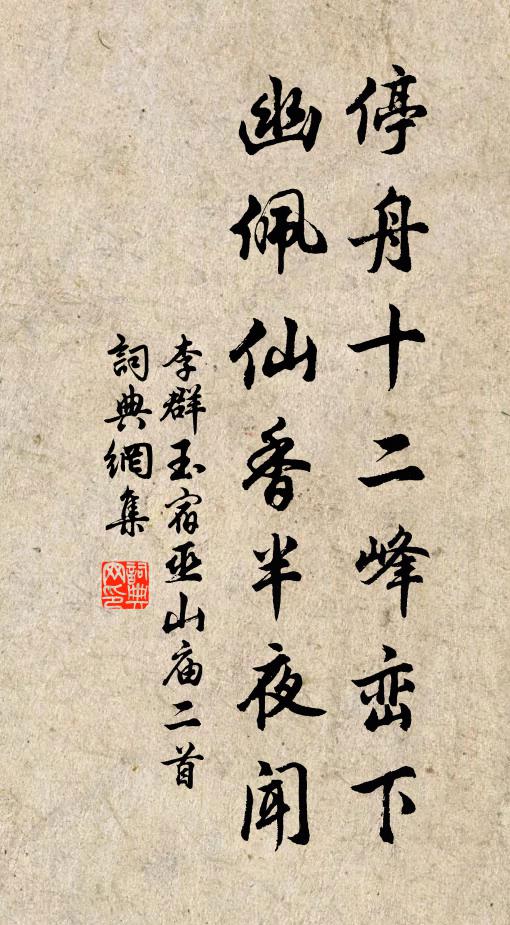 停舟十二峰峦下
幽佩仙香半夜闻
李群玉宿巫山庙二首
詞典網集
詞典网印